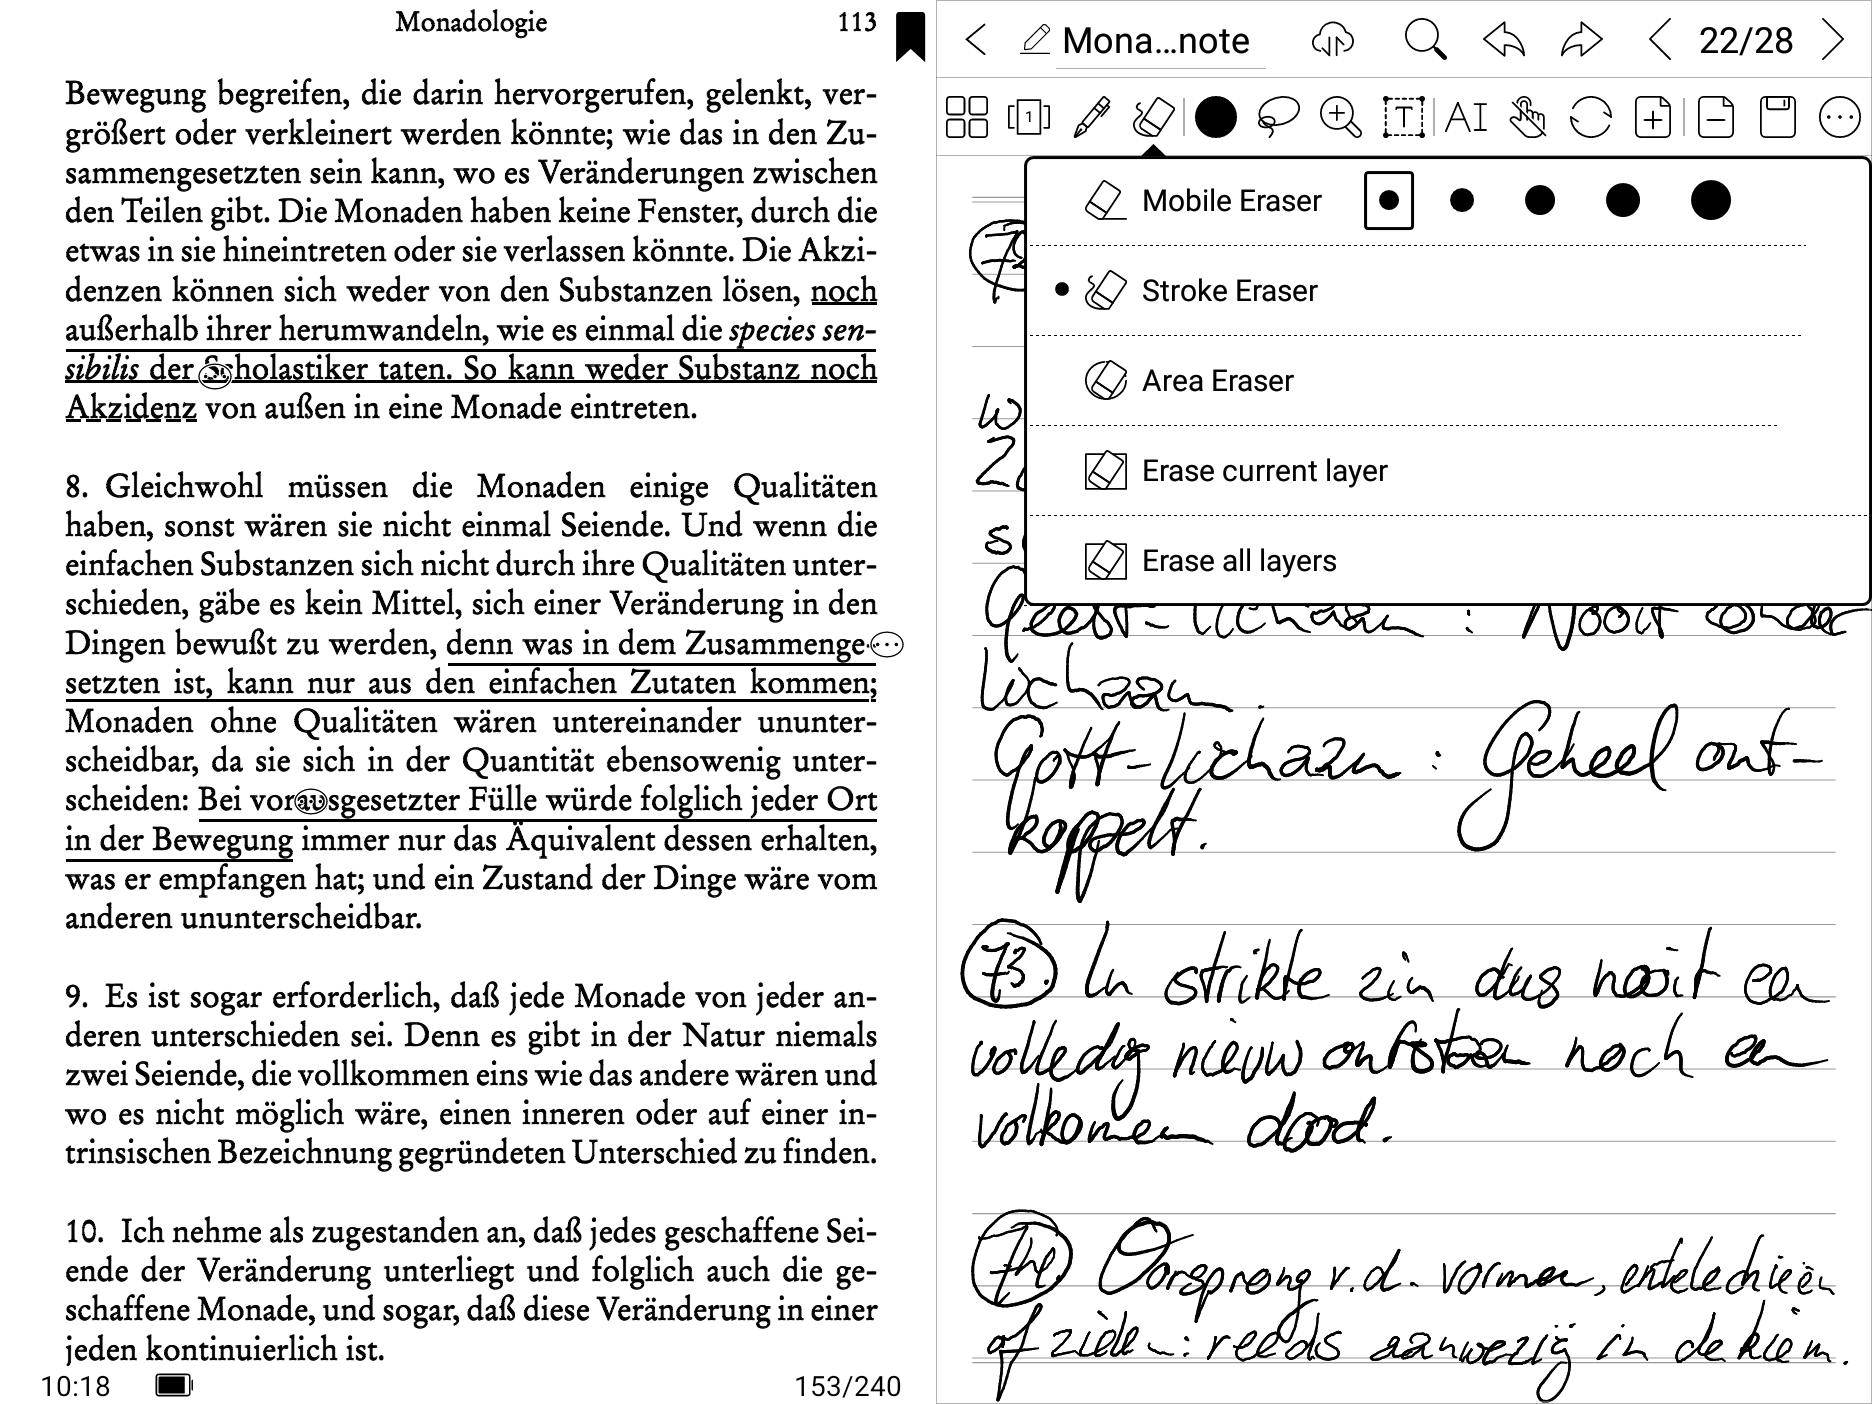 Monadologie 113
Bewegung begreifen, die darin hervorgerufen, gelenkt, ver-
größert oder verkleinert werden könnte; wie das in den Zu-
sammengesetzten sein kann, wo es Veränderungen zwischen
den Teilen gibt. Die Monaden haben keine Fenster, durch die
etwas in sie hineintreten oder sie verlassen könnte. Die Akzi-
denzen können sich weder von den Substanzen lösen, noch
außerhalb ihrer herumwandeln, wie es einmal die species sen-
sibilis der Scholastiker taten. So kann weder Substanz noch
Akzidenz von außen in eine Monade eintreten.
8. Gleichwohl müssen die Monaden einige Qualitäten
haben, sonst wären sie nicht einmal Seiende. Und wenn die
einfachen Substanzen sich nicht durch ihre Qualitäten unter-
schieden, gäbe es kein Mittel, sich einer Veränderung in den
Dingen bewußt zu werden, denn was in dem Zusammenge-
setzten ist, kann nur aus den einfachen Zutaten kommen;
Monaden ohne Qualitäten wären untereinander ununter-
scheidbar, da sie sich in der Quantität ebensowenig unter-
scheiden: Bei vorausgesetzter Fülle würde folglich jeder Ort
in der Bewegung immer nur das Äquivalent dessen erhalten,
was er empfangen hat; und ein Zustand der Dinge wäre vom
anderen ununterscheidbar.
9. Es ist sogar erforderlich, daß jede Monade von jeder an-
deren unterschieden sei. Denn es gibt in der Natur niemals
zwei Seiende, die vollkommen eins wie das andere wären und
wo es nicht möglich wäre, einen inneren oder auf einer in-
trinsischen Bezeichnung gegründeten Unterschied zu finden.
10. Ich nehme als zugestanden an, daß jedes geschaffene Sei-
ende der Veränderung unterliegt und folglich auch die ge-
schaffene Monade, und sogar, daß diese Veränderung in einer
jeden kontinuierlich ist.
10:18 153/240
Mona...note 22/28
1 T AI
Mobile Eraser
Stroke Eraser
Area Eraser
Erase current layer
Erase all layers
Geest-lichaam : Nooit zonder
lichaam.
Gott-lichaam : Geheel ont-
koppelt.
73. In strikte zin dus nooit een
volledig nieuw ontstaan noch een
volkomen dood.
74. Oorsprong v.d. vormen, entelechieën
of zielen: reeds aanwezig in de kiem.